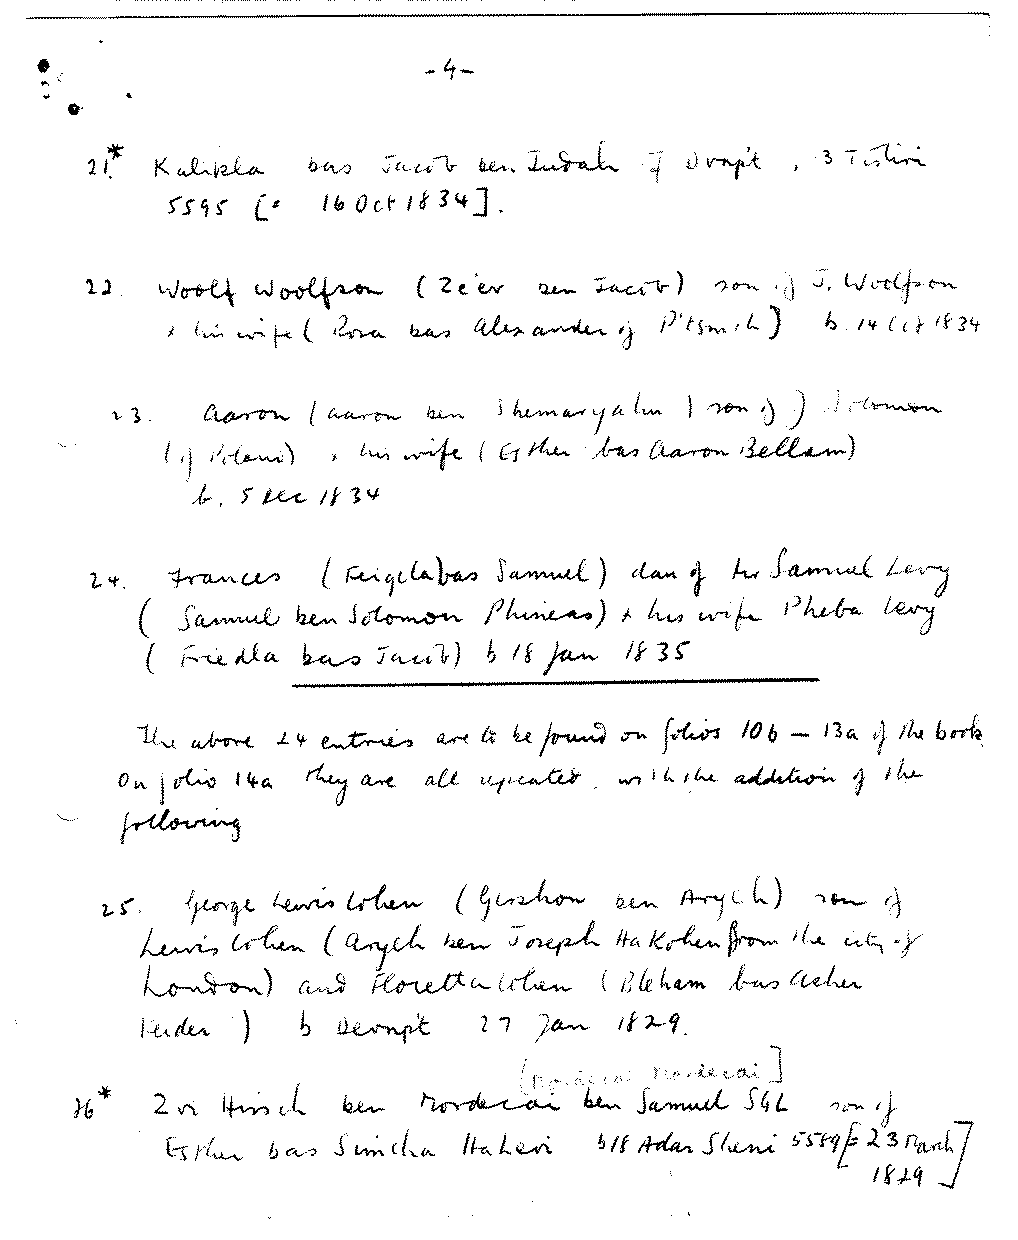 -4-
21.* Kalikla bas Jacob ben Judah of Dvnpt, 3 Tishri
5595 [= 16 Oct 1834].
22. Woolf Woolfson (Ze'ev ben Jacob) son of J. Woolfson
+ his wife (Rosa bas Alexander of P'tsmth] b. 14 Oct 1834
23. Aaron (Aaron ben Shemaryahu) son of) Solomon
(of Poland) + his wife (Esther bas Aaron Bellam)
b. 5 Dec 1834
24. Frances (Feigela bas Samuel) dau of Mr Samuel Levy
(Samuel ben Solomon Phineas) + his wife Pheba Levy
(Friedla bas Jacob) b 18 Jan 1835
The above 24 entries are to be found on folios 10b – 13a of the book
On folio 14a they are all repeated, with the addition of the
following
25. George Lewis Cohen (Gershon ben Aryeh) son of
Lewis Cohen (Aryeh ben Joseph HaKohen from the city of
London) and Floretta Cohen (Bleham bas Asher
) b Devnpt 27 Jan 1829.
[Mordecai Mordecai]
26* Zvi Hirsch ben Mordecai ben Samuel SGL son of
Esther bas Simcha HaLevi b 18 Adar Sheni 5589 [= 23 March
1829]